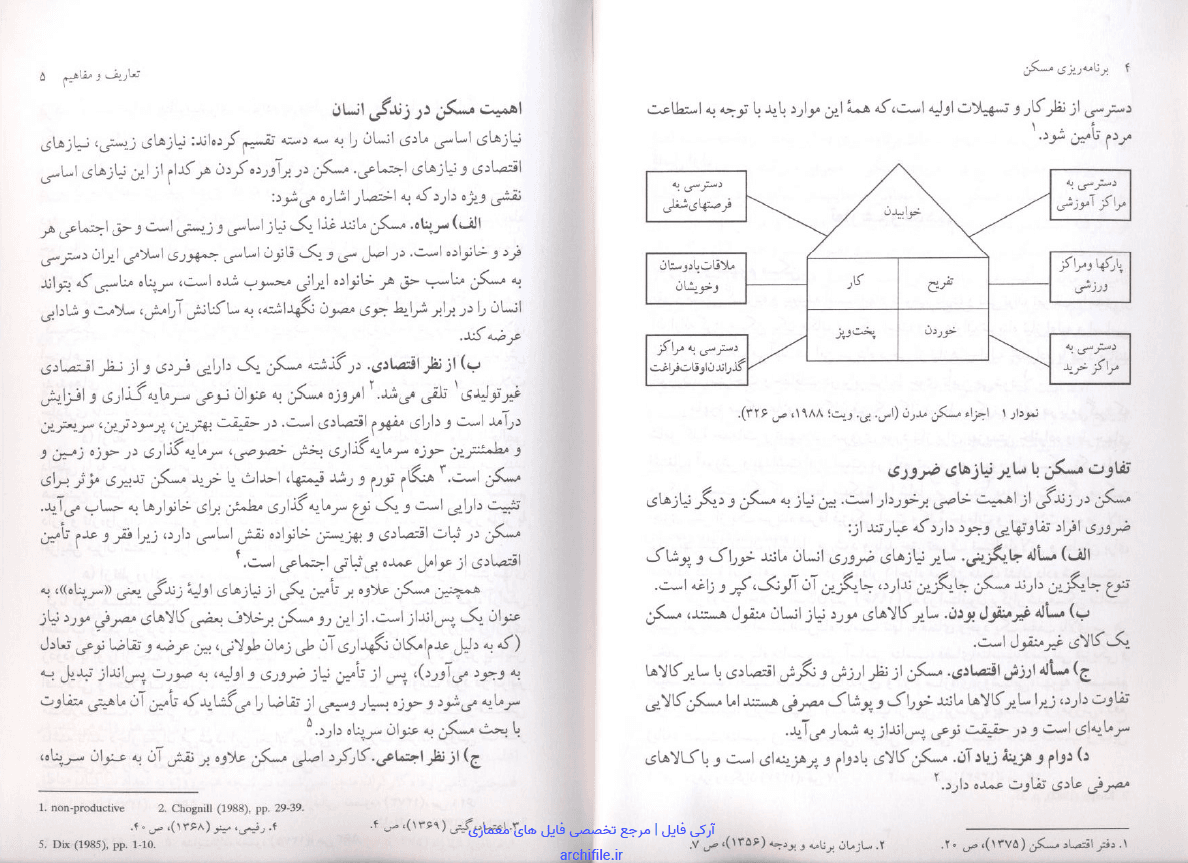 ۴ برنامه‌ریزی مسکن
دسترسی از نظر کار و تسهیلات اولیه است، که همهٔ این موارد باید با توجه به استطاعت
مردم تأمین شود.۱
دسترسی به
مراکز آموزشی
پارکها و مراکز
ورزشی
دسترسی به
مراکز خرید
خوابیدن
تفریح
کار
خوردن
پخت‌وپز
دسترسی به
فرصتهای شغلی
ملاقات با دوستان
و خویشان
دسترسی به مراکز
گذراندن اوقات فراغت
نمودار ۱ اجزاء مسکن مدرن (اس. بی. ویت؛ ۱۹۸۸، ص ۳۲۶).
تفاوت مسکن با سایر نیازهای ضروری
مسکن در زندگی از اهمیت خاصی برخوردار است. بین نیاز به مسکن و دیگر نیازهای
ضروری افراد تفاوتهایی وجود دارد که عبارتند از:
الف) مسأله جایگزینی. سایر نیازهای ضروری انسان مانند خوراک و پوشاک
تنوع جایگزین دارند مسکن جایگزین ندارد، جایگزین آن آلونک، کپر و زاغه است.
ب) مسأله غیرمنقول بودن. سایر کالاهای مورد نیاز انسان منقول هستند، مسکن
یک کالای غیرمنقول است.
ج) مسأله ارزش اقتصادی. مسکن از نظر ارزش و نگرش اقتصادی با سایر کالاها
تفاوت دارد، زیرا سایر کالاها مانند خوراک و پوشاک مصرفی هستند اما مسکن کالایی
سرمایه‌ای است و در حقیقت نوعی پس‌انداز به شمار می‌آید.
د) دوام و هزینهٔ زیاد آن. مسکن کالای بادوام و پرهزینه‌ای است و با کالاهای
مصرفی عادی تفاوت عمده دارد.۲
۱. دفتر اقتصاد مسکن (۱۳۷۵)، ص ۲۰.
۲. سازمان برنامه و بودجه (۱۳۵۶)، ص ۷.
تعاریف و مفاهیم ۵
اهمیت مسکن در زندگی انسان
نیازهای اساسی مادی انسان را به سه دسته تقسیم کرده‌اند: نیازهای زیستی، نیازهای
اقتصادی و نیازهای اجتماعی. مسکن در برآورده کردن هر کدام از این نیازهای اساسی
نقشی ویژه دارد که به اختصار اشاره می‌شود:
الف) سرپناه. مسکن مانند غذا یک نیاز اساسی و زیستی است و حق اجتماعی هر
فرد و خانواده است. در اصل سی و یک قانون اساسی جمهوری اسلامی ایران دسترسی
به مسکن مناسب حق هر خانواده ایرانی محسوب شده است، سرپناه مناسبی که بتواند
انسان را در برابر شرایط جوی مصون نگهداشته، به ساکنانش آرامش، سلامت و شادابی
عرضه کند.
ب) از نظر اقتصادی. در گذشته مسکن یک دارایی فردی و از نظر اقتصادی
غیرتولیدی۱ تلقی می‌شد.۲ امروزه مسکن به عنوان نوعی سرمایه‌گذاری و افزایش
درآمد است و دارای مفهوم اقتصادی است. در حقیقت بهترین، پرسودترین، سریعترین
و مطمئنترین حوزه سرمایه‌گذاری بخش خصوصی، سرمایه‌گذاری در حوزه زمین و
مسکن است.۳ هنگام تورم و رشد قیمتها، احداث یا خرید مسکن تدبیری مؤثر برای
تثبیت دارایی است و یک نوع سرمایه‌گذاری مطمئن برای خانوارها به حساب می‌آید.
مسکن در ثبات اقتصادی و بهزیستن خانواده نقش اساسی دارد، زیرا فقر و عدم تأمین
اقتصادی از عوامل عمده بی‌ثباتی اجتماعی است.۴
همچنین مسکن علاوه بر تأمین یکی از نیازهای اولیهٔ زندگی یعنی «سرپناه»، به
عنوان یک پس‌انداز است. از این رو مسکن برخلاف بعضی کالاهای مصرفیِ مورد نیاز
(که به دلیل عدم‌امکان نگهداری آن طی زمان طولانی، بین عرضه و تقاضا نوعی تعادل
به وجود می‌آورد)، پس از تأمینِ نیاز ضروری و اولیه، به صورت پس‌انداز تبدیل به
سرمایه می‌شود و حوزه بسیار وسیعی از تقاضا را می‌گشاید که تأمین آن ماهیتی متفاوت
با بحث مسکن به عنوان سرپناه دارد.۵
ج) از نظر اجتماعی. کارکرد اصلی مسکن علاوه بر نقش آن به عنوان سرپناه،
1. non-productive 2. Chognill (1988), pp. 29-39.
۳. گیتی (۱۳۶۹)، ص ۴. ۴. رفیعی، مینو (۱۳۶۸)، ص ۴۰.
5. Dix (1985), pp. 1-10.
آرکی فایل | مرجع تخصصی فایل های معماری
archifile.ir